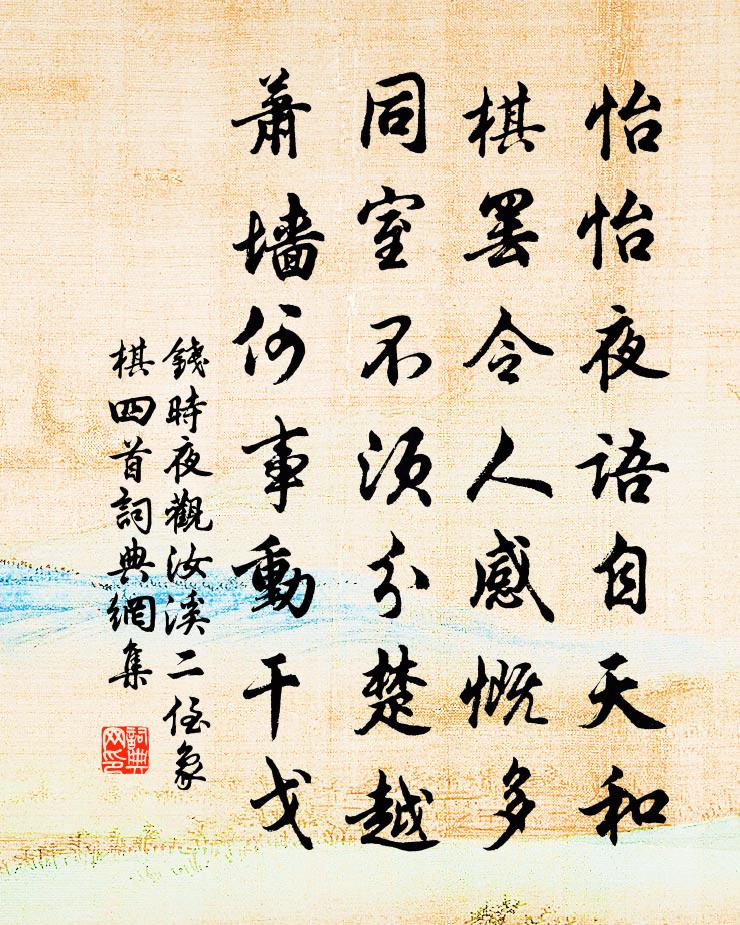 怡怡夜语自天和
棋罢令人感慨多
同室不须分楚越
萧墙何事动干戈
钱时夜观汝溪二侄象
棋四首词典网集
词典网印